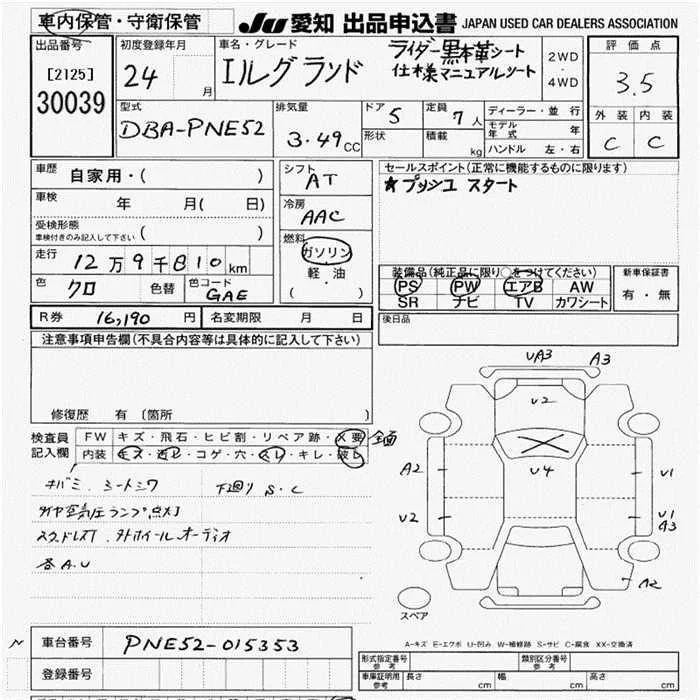 車内保管・守衛保管
JU 愛知 出品申込書 JAPAN USED CAR DEALERS ASSOCIATION
出品番号
[2125]
30039
初度登録年月
24 月
車名・グレード
エルグランド
ライダー黒本革シート
仕様マニュアルシート
2WD
・
4WD
評価点
3.5
外装 内装
C C
型式
DBA-PNE52
排気量
3.49 CC
ドア 5
形状
定員 7 人
積載 kg
ディーラー・並行
モデル年式 年
ハンドル 左・右
車歴
自家用・( )
車検 年 月( 日)
受検形態
車検付きのみ記入して下さい ( )
走行 12万9千810km
色 クロ 色替 色コード GAE
シフト AT
冷房 AAC
燃料
ガソリン
軽・油
( )
セールスポイント(正常に機能するものに限ります)
★プッシュ スタート
装備品(純正品に限り○をつけてください)
PS PW エアB AW
SR ナビ TV カワシート
新車保証書
有・無
R券 16,190 円 名変期限 月 日
後日品
注意事項申告欄(不具合内容等は具体的に記入して下さい)
修復歴 有〔箇所 〕
検査員記入欄
FW キズ・飛石・ヒビ割・リペア跡・X要 全面
内装 キズ・汚レ・コゲ・穴・スレ・キレ・破レ
シートシワ 下廻り S・C
タイヤ空気圧ランプ点灯
スタッドレス1 外ホイール オーディオ
各A.U
UA3
A3
U2
A2
U4
U1
U2
U1
A3
A2
スペア
A-キズ E-エクボ U-凹み W-補修跡 S-サビ C-腐食 XX-交換済
車台番号 PNE52-015353
登録番号
形式指定番号 参考
類別区分番号 参考
車庫証明用 参考 長さ cm 幅 cm 高さ cm